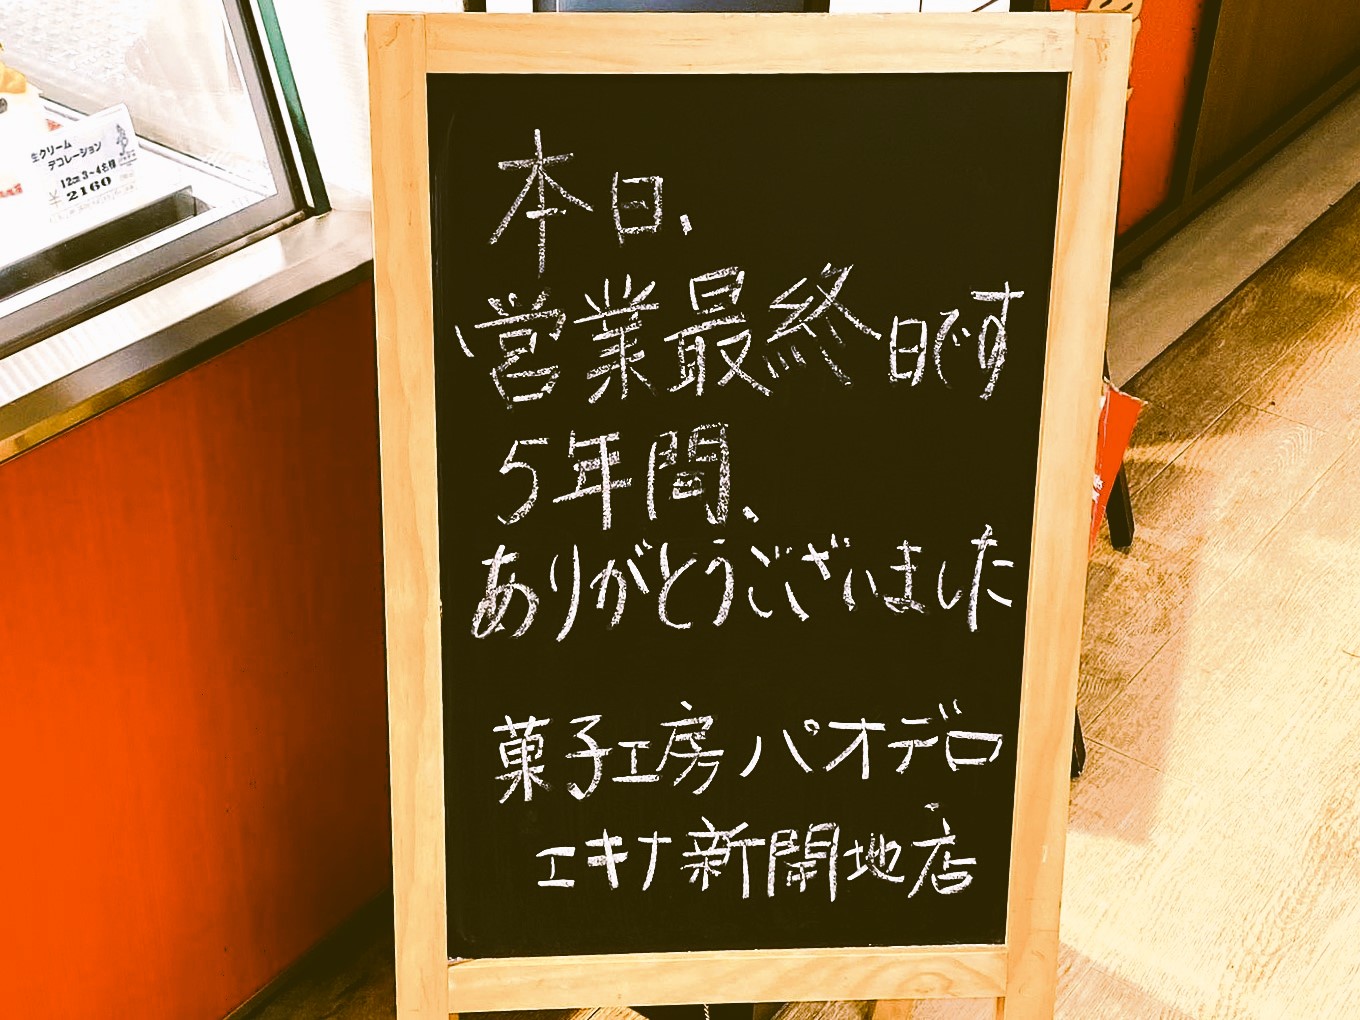 本日、
営業最終日です
5年間、
ありがとうございました
菓子工房パオデロ
エキナ新開地店
生クリーム
デコレーション
12cm 3~4名様
¥2160